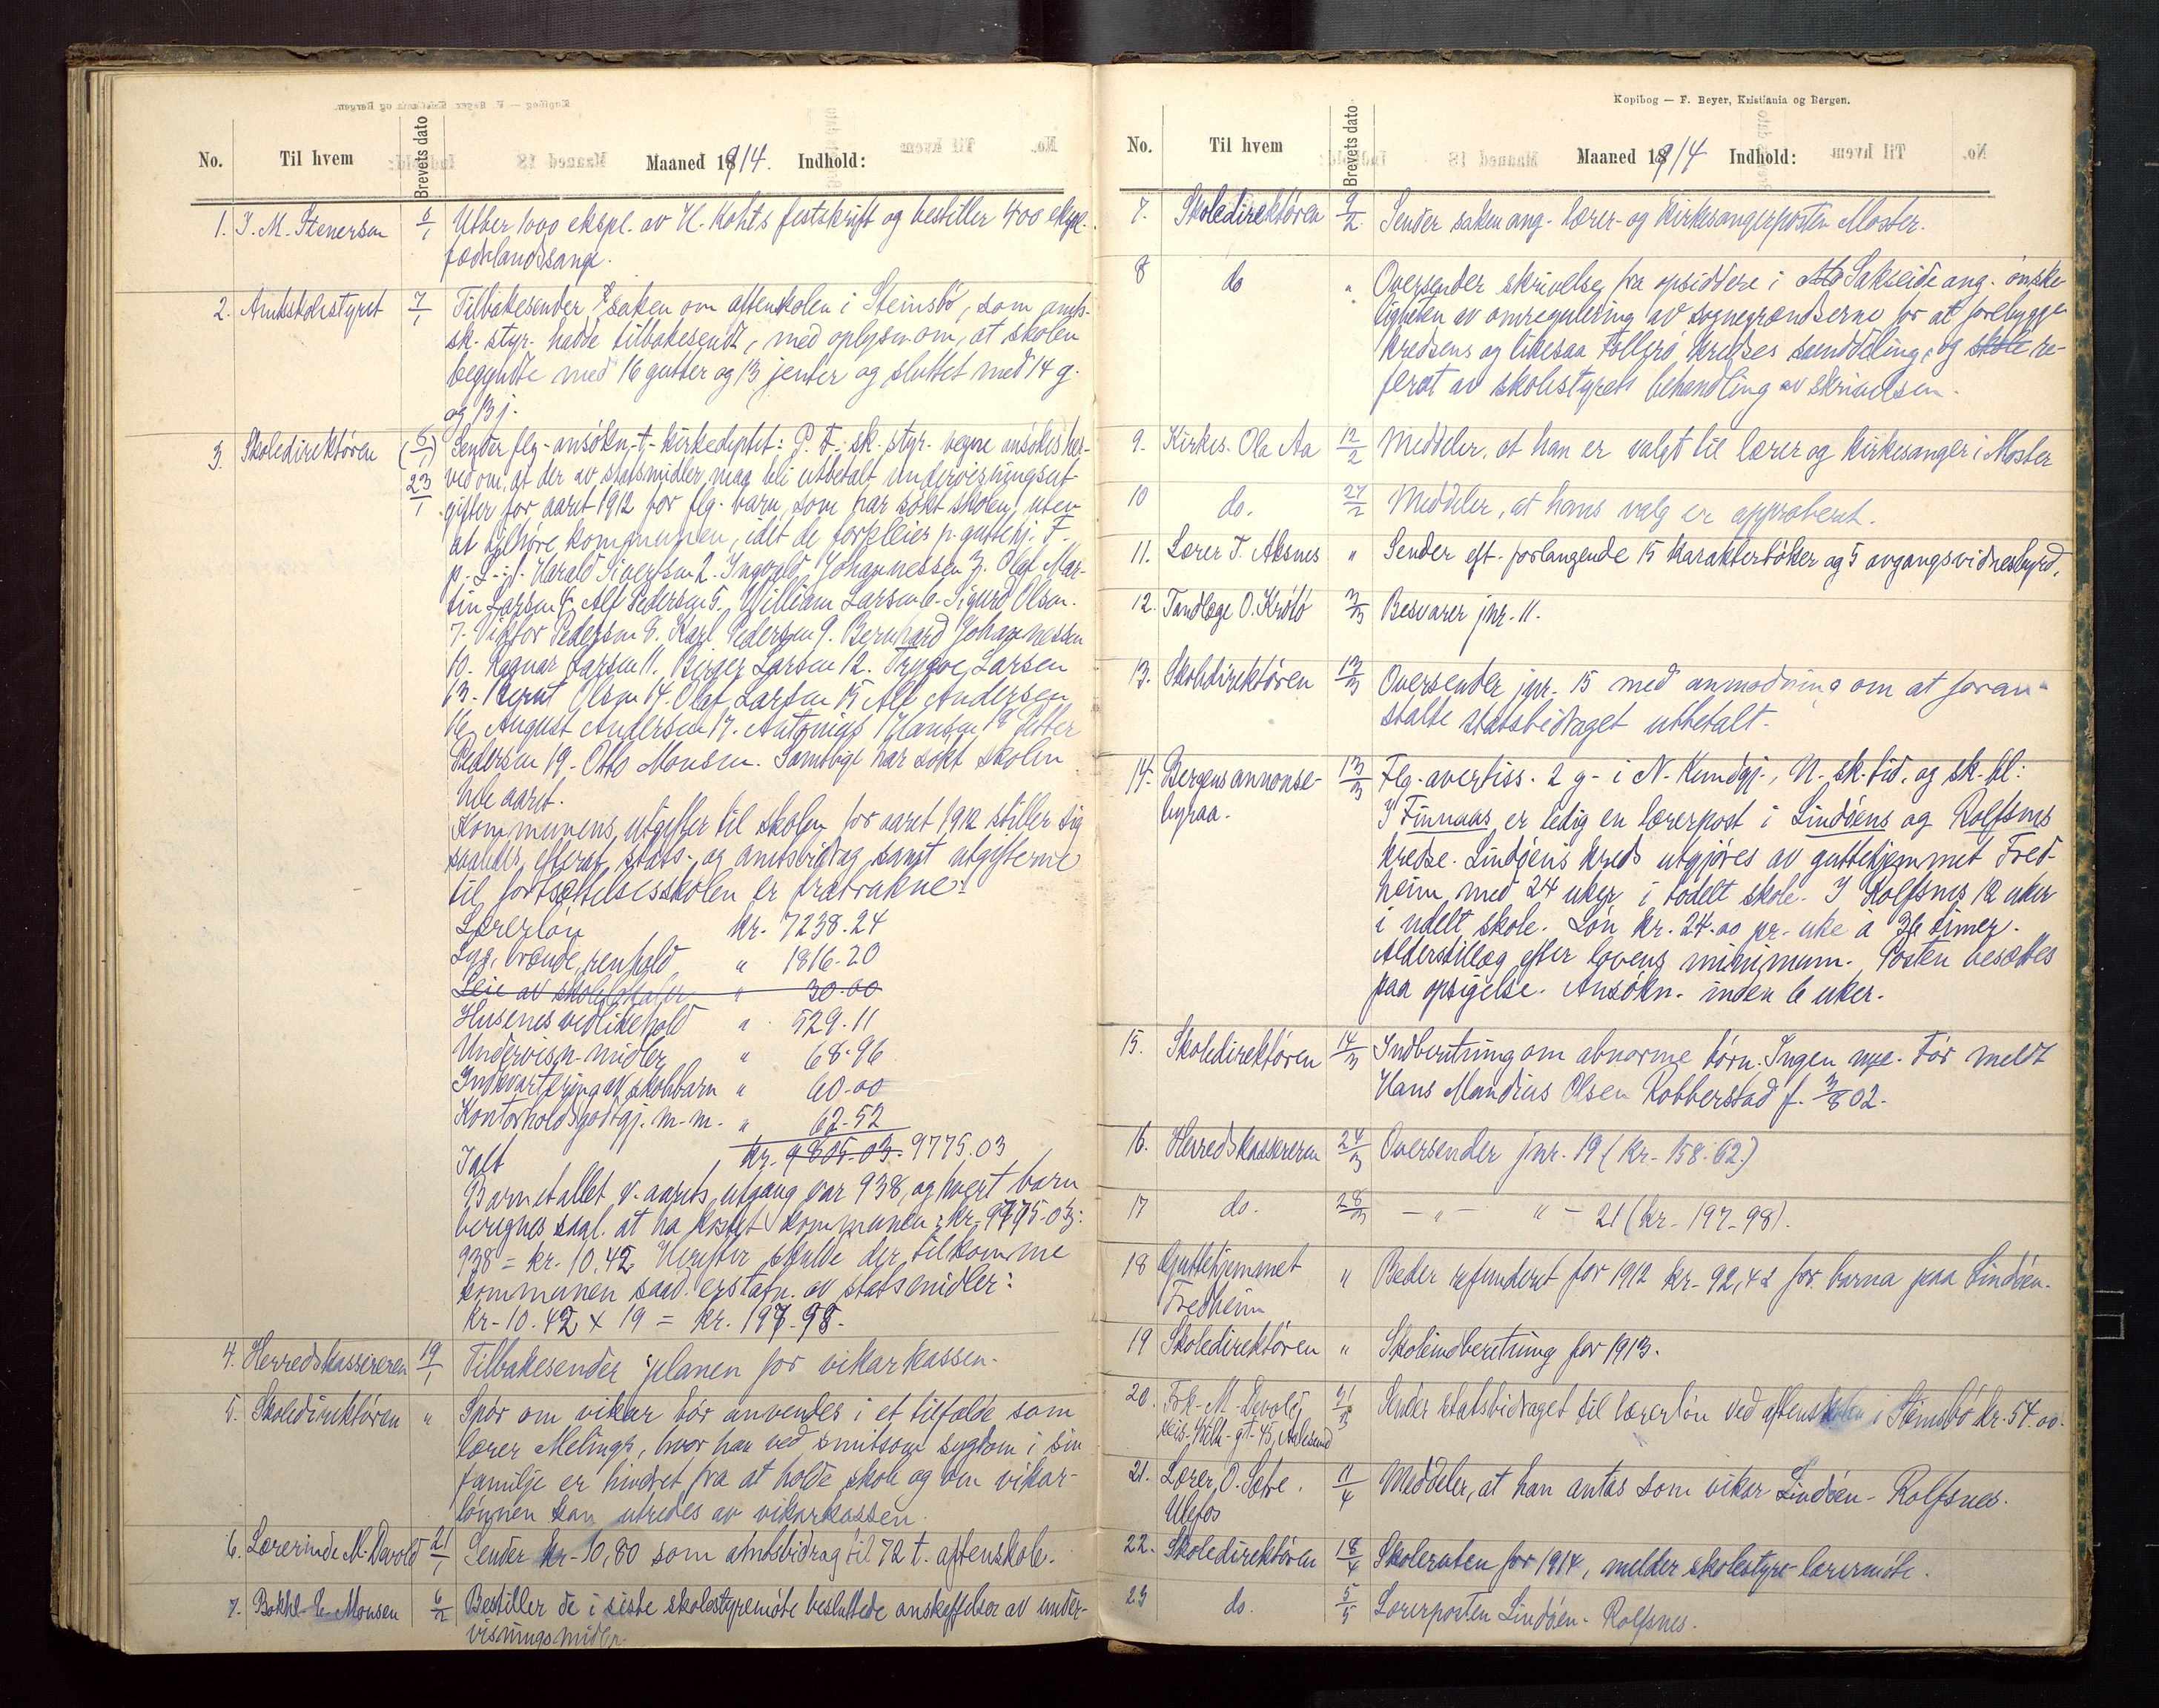 No. Til hvem Brevets dato Maaned 1914. Indhold:
1. J. M. Stenersen 6/1 Utber 1000 ekspl. av H. Kohts festskrift og bestiller 400 ekspl.
fædrelandssange.
2. Amtsskolestyret 7/1 Tilbakesender saken om aftenskolen i Steinsbö, som amts-
sk. styr. hadde tilbakesendt, med oplysn. om, at skolen
begyndte med 16 gutter og 13 jenter og sluttet med 14 g.
og 13 j.
3. Skoledirektören (6/1) Sender flg. ansökn. t. kirkedeptet: P. F. sk. styr. vegne ansökes her-
23/1 ved om, at der av statsmidler maa bli utbetalt undervisningsut-
gifter for aaret 1912 for flg. barn, som har sökt skolen, uten
at tilhöre kommunen, idet de forpleies p. guttehj. F.
p. L.: 1. Harald Sivertsen 2. Ingvald Johannessen 3. Olaf Mar-
tin Larsen 4. Alf Pedersen 5. William Larsen 6. Sigurd Olsen.
7. Viktor Pedersen 8. Karl Pedersen 9. Bernhard Johannessen
10. Ragnar Larsen 11. Birger Larsen 12. Trygve Larsen
13. Knut Olsen 14. Olaf Larsen 15 Alf Andersen
16 August Andersen 17. Antonius Hansen 18 Petter
Pedersen 19. Otto Monsen. Samtlige har sökt skolen
hele aaret.
Kommunens utgifter til skolen for aaret 1912 stiller sig
saaledes, efterat stats- og amtsbidrag samt utgifterne
til fortsættelsesskolen er fratrukne:
Lærerlön kr. 7238.24
Lys, brænde, renhold " 1816.20
Leie av skolelokaler " 30.00
Husenes vedlikehold " 529.11
Undervisn. midler " 68.96
Indkvartering av skolebarn " 60.00
Kontorholdsgodtgj. m. m. " 62.52
Ialt kr. 9805.03. 9775.03
Barnetallet v. aarets utgang var 938, og hvert barn
beregnes saal. at ha kostet kommunen: kr. 9775.03:
938 = kr. 10.42. Herefter skulde der tilkomme
kommunen saad. erstatn. av statsmidler:
kr. 10.42 x 19 = kr. 197.98.
4. Herredskassereren 19/1 Tilbakesender planen for vikarkassen.
5. Skoledirektören " Spör om vikar bör anvendes i et tilfælde som
lærer Melings, hvor han ved smitsom sygdom i sin
familje er hindret fra at holde skole og om vikar-
lönnen kan utredes av vikarkassen.
6. Lærerinde M. Devold 21/1 Sender kr. 10,80 som amtsbidrag til 72 t. aftenskole.
7. Bokhl. E. Monsen 6/2 Bestiller de i siste skolestyremöte besluttede anskaffelser av under-
visningsmidler
Kopibog — F. Beyer, Kristiania og Bergen.
No. Til hvem Brevets dato Maaned 1914 Indhold:
7. Skoledirektören 9/2 Sender saken ang. lærer- og kirkesangerposten Moster.
8 do " Oversender skrivelse fra opsiddere i Sakseide ang. önske-
ligheten av omregulering av sognegrændserne for at forebygge
kredsens og likesaa Tollerö kredses sönddeling, og skole re-
ferat av skolestyrets behandling av skrivelsen.
9. Kirkes. Ola Aa 12/2 Meddeler, at han er valgt til lærer og kirkesanger i Moster
10 do. 27/2 Meddeler, at hans valg er approbert.
11. Lærer T. Aksnes " Sender eft. forlangende 15 karakterböker og 5 avgangsvidnesbyrd.
12. Tandlæge O. Krötö 3/3 Besvarer jnr. 11.
13. Skoledirektören 13/3 Oversender jnr. 15 med anmodning om at foran-
stalte statsbidraget utbetalt.
14. Bergens annonse- 13/3 Flg. avertiss. 2 g. i N. Kundgj., N. sk. tid. og sk. bl:
byraa. I Finnaas er ledig en lærerpost i Lindöens og Rolfsnes
kredse. Lindöens kreds utgjöres av guttehjemmet Fred-
heim med 24 uker i todelt skole. I Rolfsnes 12 uker
i udelt skole. Lön kr. 24.00 pr. uke à 36 timer.
Alderstillæg efter lovens minimum. Posten besættes
paa opsigelse. Ansökn. inden 6 uker.
15. Skoledirektören 14/3 Indberetning om abnorme börn. Ingen nye. För meldt
Hans Mandius Olsen Robberstad f. 3/8 02.
16. Herredskassereren 24/3 Oversender jnr. 19 (kr. 158.62.)
17 do. 28/3 — " — " — 21 (kr. 197.98).
18 Guttehjemmet " Beder refunderet for 1912 kr. 92,42 for barna paa Lindöen.
Fredheim
19 Skoledirektören " Skoleindberetning for 1913.
20. Frk. M. Devold, 31/3 Sender statsbidraget til lærerlön ved aftenskolen i Steinsbö kr. 54.00.
Keis. Wilh. gt. 45, Aalesund
21. Lærer O. Sætre. 11/4 Meddeler, at han antas som vikar Lindöen - Rolfsnes.
Ulefos
22. Skoledirektören 18/4 Skoleruten for 1914, melder skolestyre-lærermöte.
23 do. 5/5 Lærerposten Lindöen - Rolfsnes.